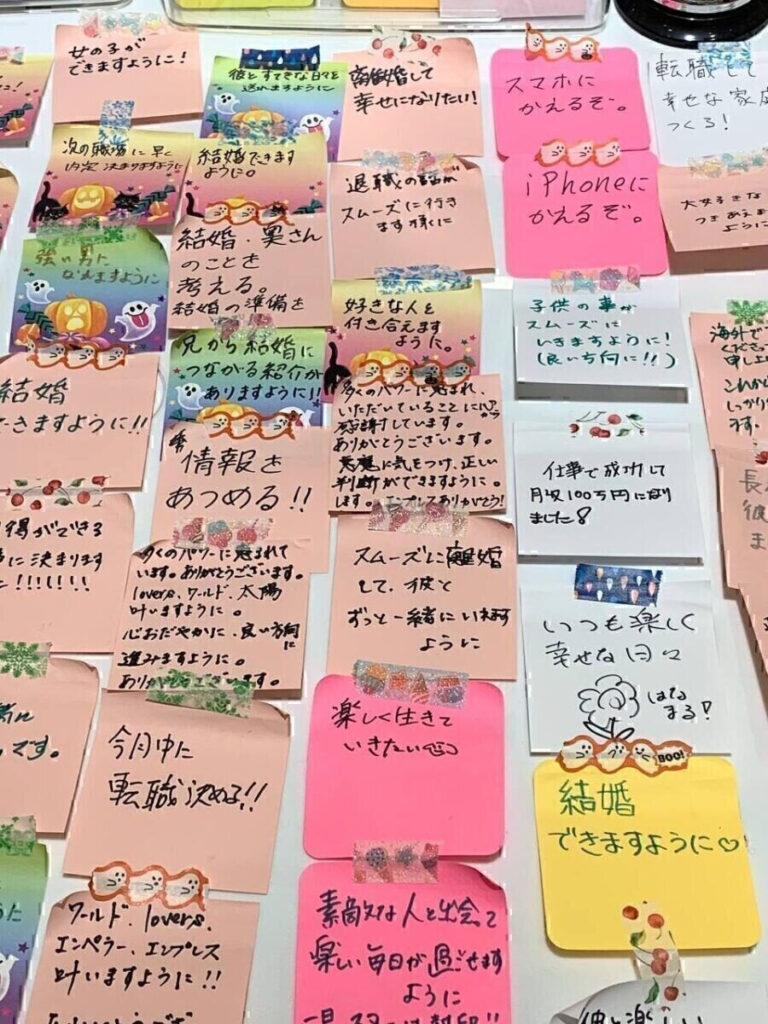 女の子が
できますように!
彼とすてきな日々を
送れますように
離婚して
幸せになりたい!
スマホに
かえるぞ。
転職して
幸せな家庭
つくる!
次の職場に早く
内定決まりますように
結婚できます
ように。
退職の話が
スムーズに行き
ます様に
iPhoneに
かえるぞ。
大好きな
つきあえま
ように
強い男に
なれますように
結婚・奥さん
のことを
考える。
結婚の準備を
好きな人と
付き合えます
ように。
子供の事が
スムーズに
いきますように!
(良い方向に!!)
海外で
結婚
できますように!!
兄から結婚に
つながる紹介が
ありますように!!
多くのパワーに恵まれ、
いただいていることに
感謝しています。
ありがとうございます。
悪魔に気をつけ、正しい
判断ができますように。
します。エンプレスありがとう!
仕事で成功して
月収100万円になり
ました
情報を
あつめる!!
得ができる
に決まります
!!!!!!!
多くのパワーに恵まれて
います。ありがとうございます。
lovers、ワールド、太陽
叶いますように。
心おだやかに、良い方向に
進みますように。
ありがとうございます。
スムーズに離婚
して、彼と
ずっと一緒にいれます
ように
いつも楽しく
幸せな日々
はな
まる!
です。
今月中に
転職決める!!
楽しく生きて
いきたい
BOO!
結婚
できますように♡
ワールド、lovers、
エンペラー、エンプレス
叶いますように!!
素敵な人と出会って
楽しい毎日が過ごせます
ように
彼と楽しい